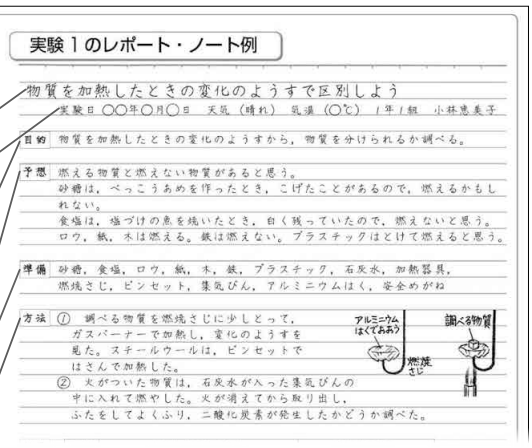 実験1のレポート・ノート例
物質を加熱したときの変化のようすで区別しよう
実験日 〇〇年〇月〇日 天気(晴れ) 気温(〇℃) 1年1組 小林恵美子
目的 物質を加熱したときの変化のようすから,物質を分けられるか調べる。
予想 燃える物質と燃えない物質があると思う。
砂糖は,べっこうあめを作ったとき,こげたことがあるので,燃えるかもし
れない。
食塩は,塩づけの魚を焼いたとき,白く残っていたので,燃えないと思う。
ロウ,紙,木は燃える。鉄は燃えない。プラスチックはとけて燃えると思う。
準備 砂糖,食塩,ロウ,紙,木,鉄,プラスチック,石灰水,加熱器具,
燃焼さじ,ピンセット,集気びん,アルミニウムはく,安全めがね
方法 ① 調べる物質を燃焼さじに少しとって,
ガスバーナーで加熱し,変化のようすを
見た。スチールウールは,ピンセットで
はさんで加熱した。
② 火がついた物質は,石灰水が入った集気びんの
中に入れて燃やした。火が消えてから取り出し,
ふたをしてよくふり,二酸化炭素が発生したかどうか調べた。
アルミニウム
はくでおおう
燃焼
さじ
調べる物質